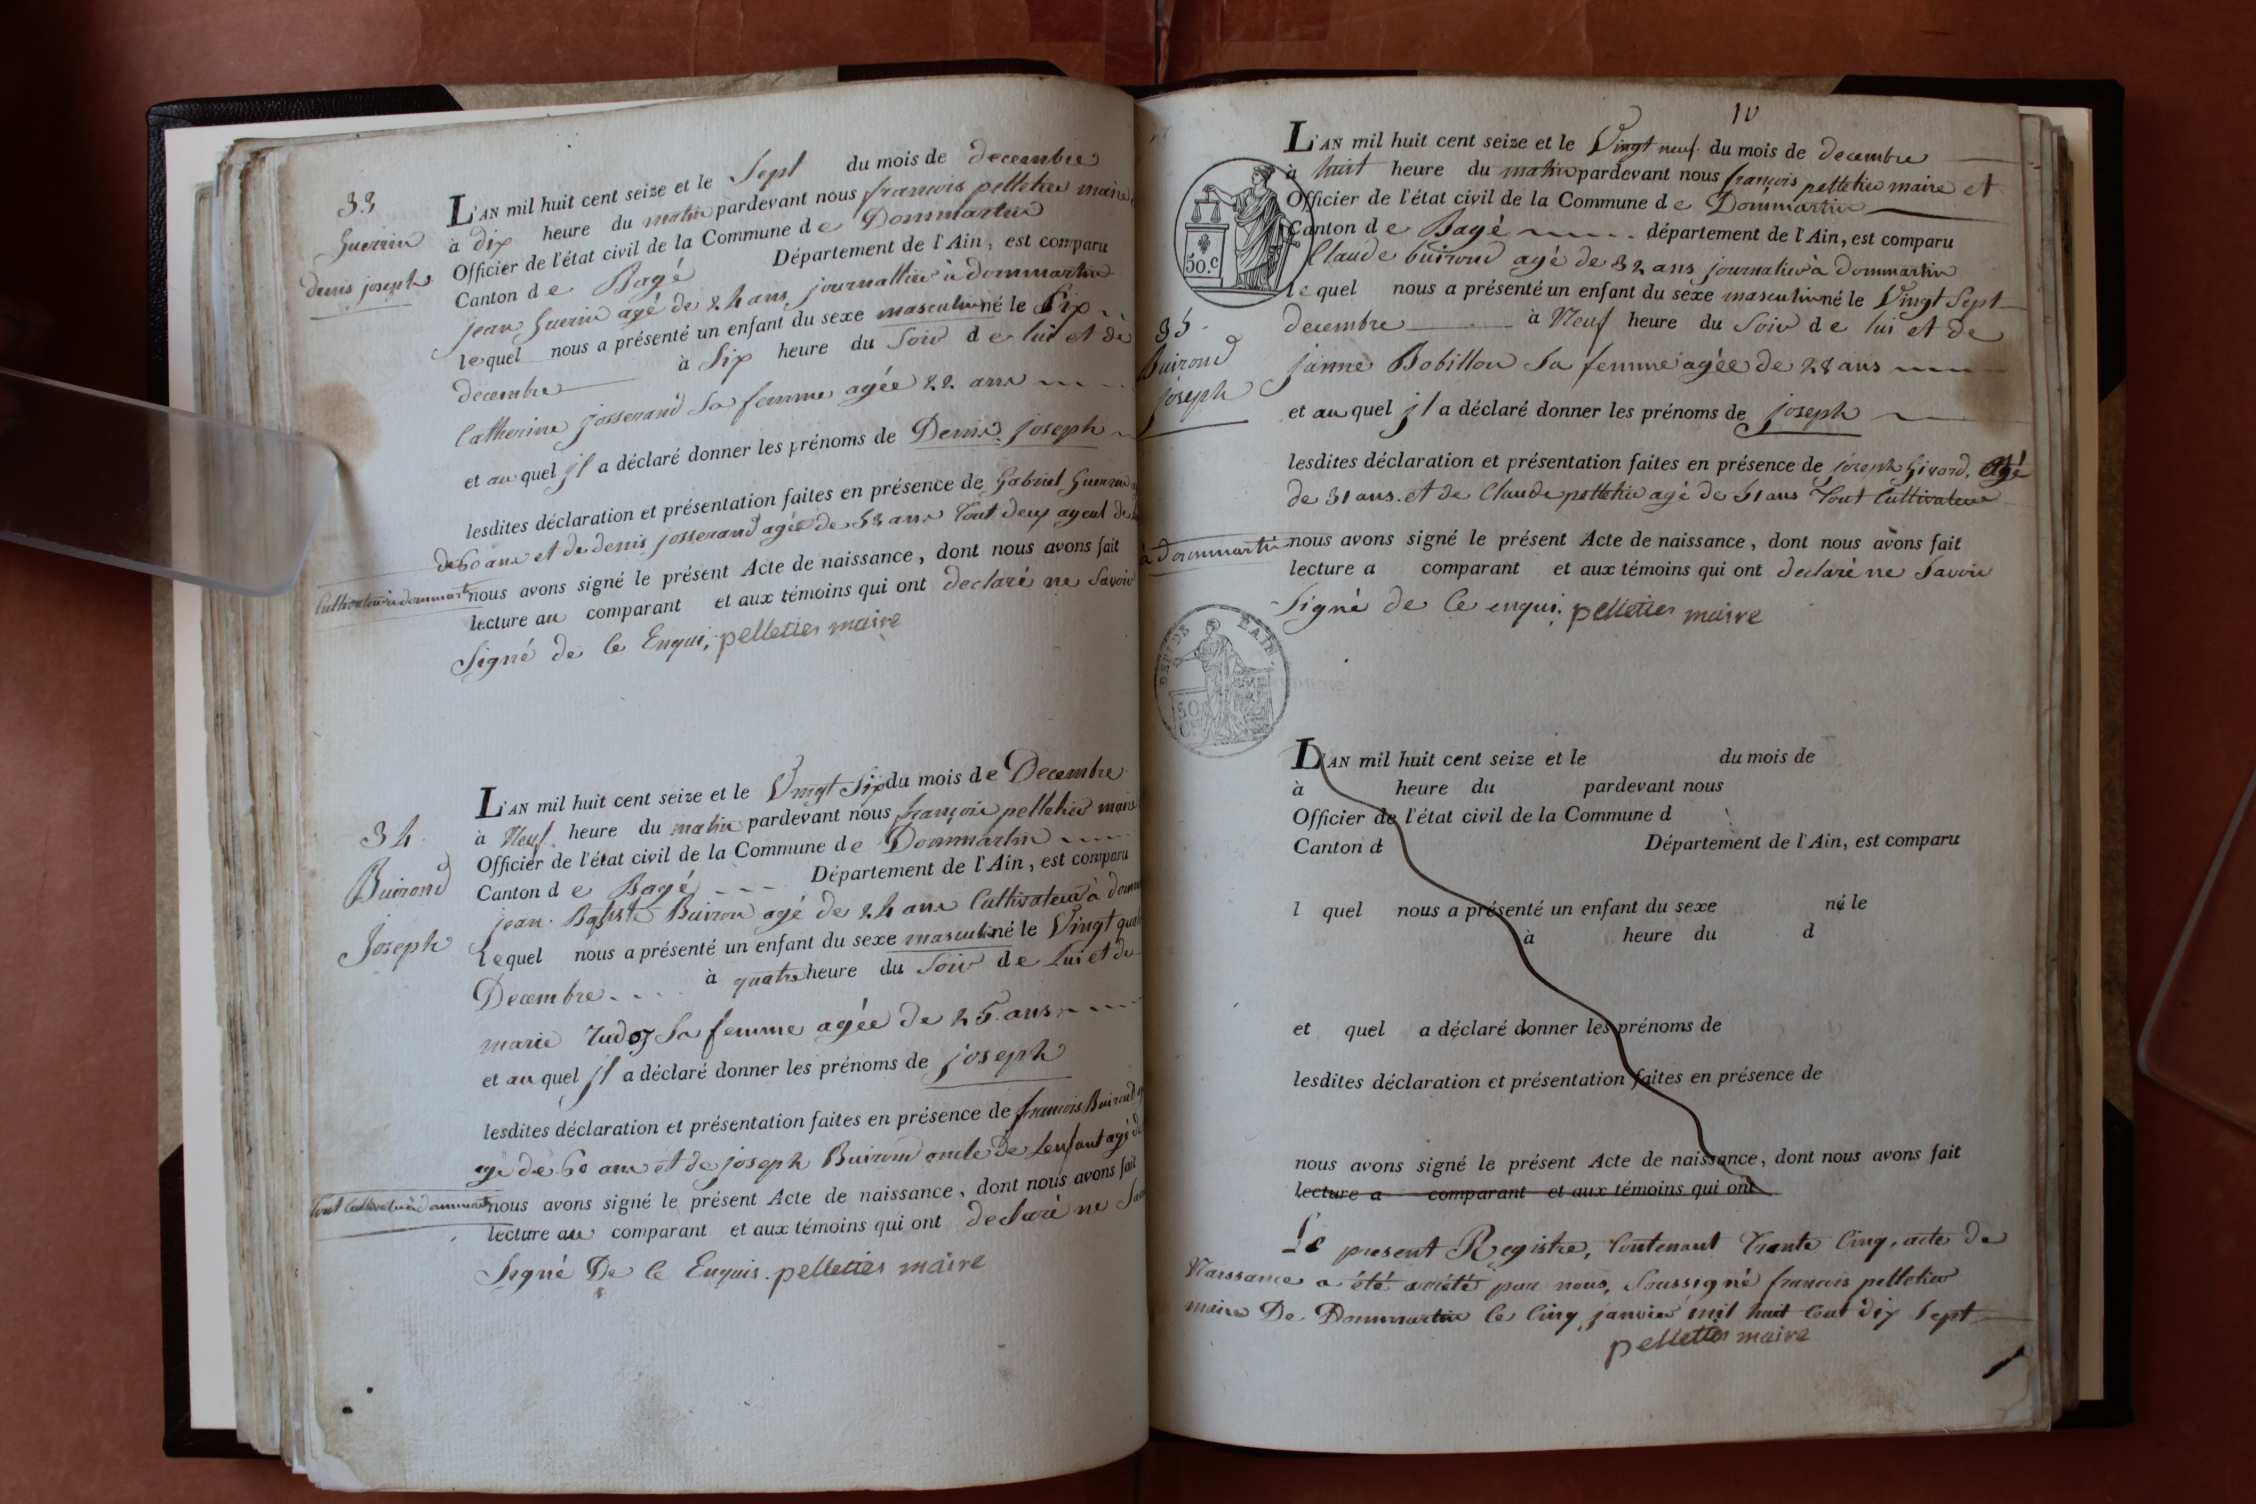 33
Guerrin
denis joseph
L'AN mil huit cent seize et le Sept du mois de decembre
à dix heure du matin pardevant nous francois pelletier maire
Officier de l'état civil de la Commune d e Dommartin
Canton d e Bagé Département de l'Ain, est comparu
jean Guerin agé de 24 ans journallier à dommartin
lequel nous a présenté un enfant du sexe masculin né le Six
decembre à Six heure du Soir d e lui et de
Catherine josserand Sa femme agée 22 ans
et au quel jl a déclaré donner les prénoms de Denis joseph
lesdites déclaration et présentation faites en présence de Gabriel Guerrin
de 60 ans et de denis josserand agée de 53 ans tout deux ayeul de
Cultivateur à dommart nous avons signé le présent Acte de naissance, dont nous avons fait
lecture au comparant et aux témoins qui ont declaré ne Savoir
Signé de Ce Enqui, pelletier maire
34
Buirond
Joseph
L'AN mil huit cent seize et le Vingt Six du mois de Decembre
à Neuf heure du matin pardevant nous françois pelletier maire
Officier de l'état civil de la Commune d e Dommartin
Canton d e Bagé Département de l'Ain, est comparu
jean Baptiste Buiron agé de 24 ans Cultivateur à
lequel nous a présenté un enfant du sexe masculin né le Vingt
Decembre à quatre heure du Soir d e Lui et de
marie Tudoy Sa femme agée de 25 ans
et au quel jl a déclaré donner les prénoms de joseph
lesdites déclaration et présentation faites en présence de francois Buirond
agé de 60 ans et de joseph Buirond oncle de Lenfant agé de
tout Cultivateur à dommart nous avons signé le présent Acte de naissance, dont nous avons fait
lecture au comparant et aux témoins qui ont declaré ne
Signé De Ce Enquis. pelletier maire
10
L'AN mil huit cent seize et le Vingt neuf du mois de decembre
à huit heure du matin pardevant nous françois pelletier maire et
Officier de l'état civil de la Commune d e Dommartin
Canton d e Bagé département de l'Ain, est comparu
50.c
Claude buirond agé de 32 ans journalier à dommartin
lequel nous a présenté un enfant du sexe masculin né le Vingt Sept
decembre à Neuf heure du Soir d e lui et de
35
Buirond
joseph
janne Bobillon Sa femme agée de 28 ans
et au quel jl a déclaré donner les prénoms de joseph
lesdites déclaration et présentation faites en présence de joseph Girard, agé
de 31 ans et de Claude pelletier agé de 51 ans tout Cultivateur
à dommartin nous avons signé le présent Acte de naissance, dont nous avons fait
lecture a comparant et aux témoins qui ont declaré ne Savoir
Signé de Ce enqui, pelletier maire
L'AN mil huit cent seize et le du mois de
à heure du pardevant nous
Officier de l'état civil de la Commune d
Canton d Département de l'Ain, est comparu
l quel nous a présenté un enfant du sexe né le
à heure du d
et quel a déclaré donner les prénoms de
lesdites déclaration et présentation faites en présence de
nous avons signé le présent Acte de naissance, dont nous avons fait
lecture a comparant et aux témoins qui ont
Le present Registre, Contenant Trante Cinq, acte de
Naissance a été arreté par nous, Soussigné francois pelletier
maire De Dommartin le Cinq janvier mil huit Cent dix Sept
pelletier maire